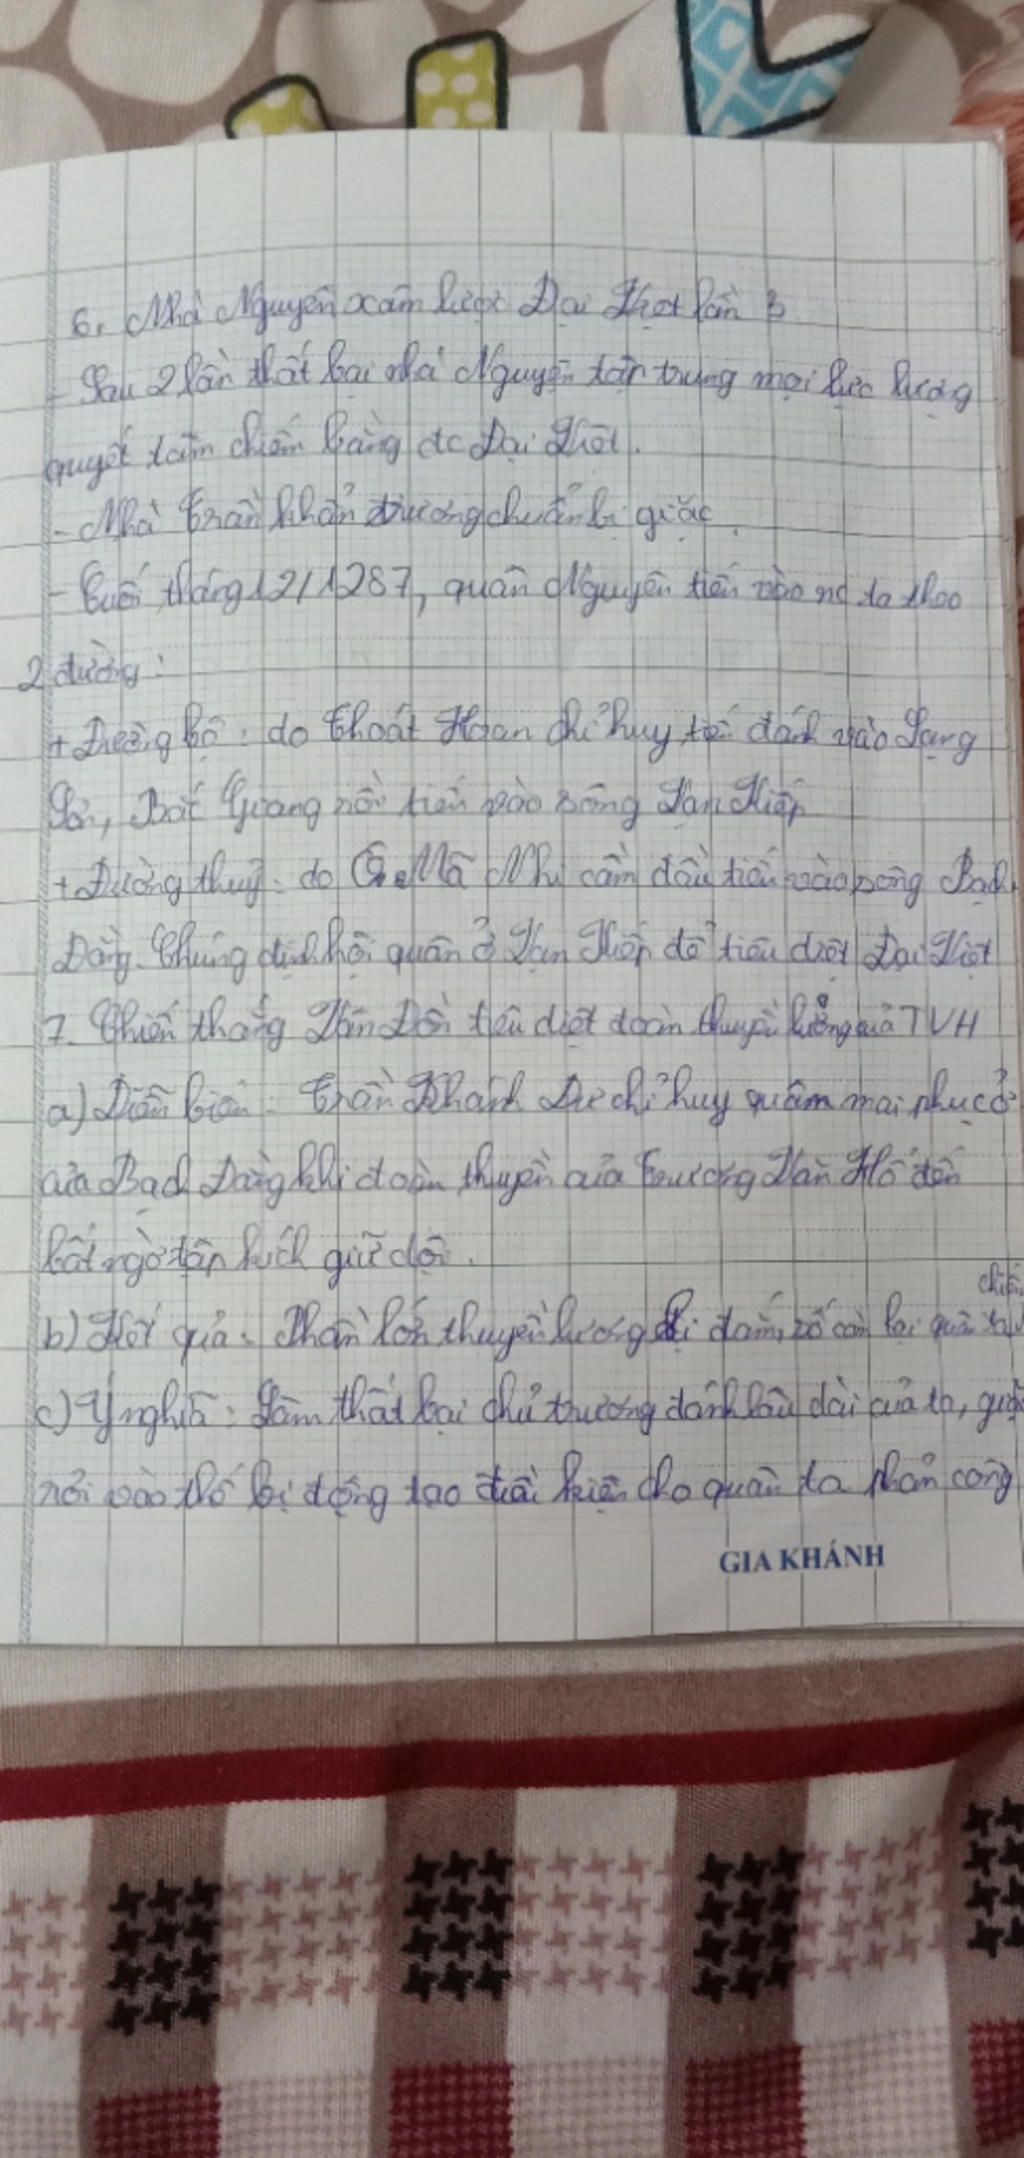 6. Nhà Nguyên xâm lược Đại Việt lần 3
- Sau 2 lần thất bại nhà Nguyên tập trung mọi lực lượng
quyết tâm chiếm bằng đc Đại Việt.
- Nhà Trần khẩn trương chuẩn bị giặc.
- Cuối tháng 12/1287, quân Nguyên tiến vào nc ta theo
2 đường:
+ Đường bộ: do Thoát Hoan chỉ huy tiến đánh vào Lạng
Sơn, Bắc Giang rồi tiến vào sông Vạn Kiếp
+ Đường thuỷ: do Ô Mã Nhi cầm đầu tiến vào sông Bạch
Đằng. Chúng định hội quân ở Vạn Kiếp để tiêu diệt Đại Việt
7. Chiến thắng Vân Đồn tiêu diệt đoàn thuyền lương của TVH
a) Diễn biến: Trần Khánh Dư chỉ huy quân mai phục ở
cửa Bạch Đằng khi đoàn thuyền của Trương Văn Hổ đến
bất ngờ tập kích giữ dội.
b) Kết quả: Phần lớn thuyền lương bị đắm, số còn lại quân ta chiếm
c) Ý nghĩa: Làm thất bại chủ trương đánh lâu dài của ta, giặc
rơi vào thế bị động tạo điều kiện cho quân ta phản công
GIA KHÁNH